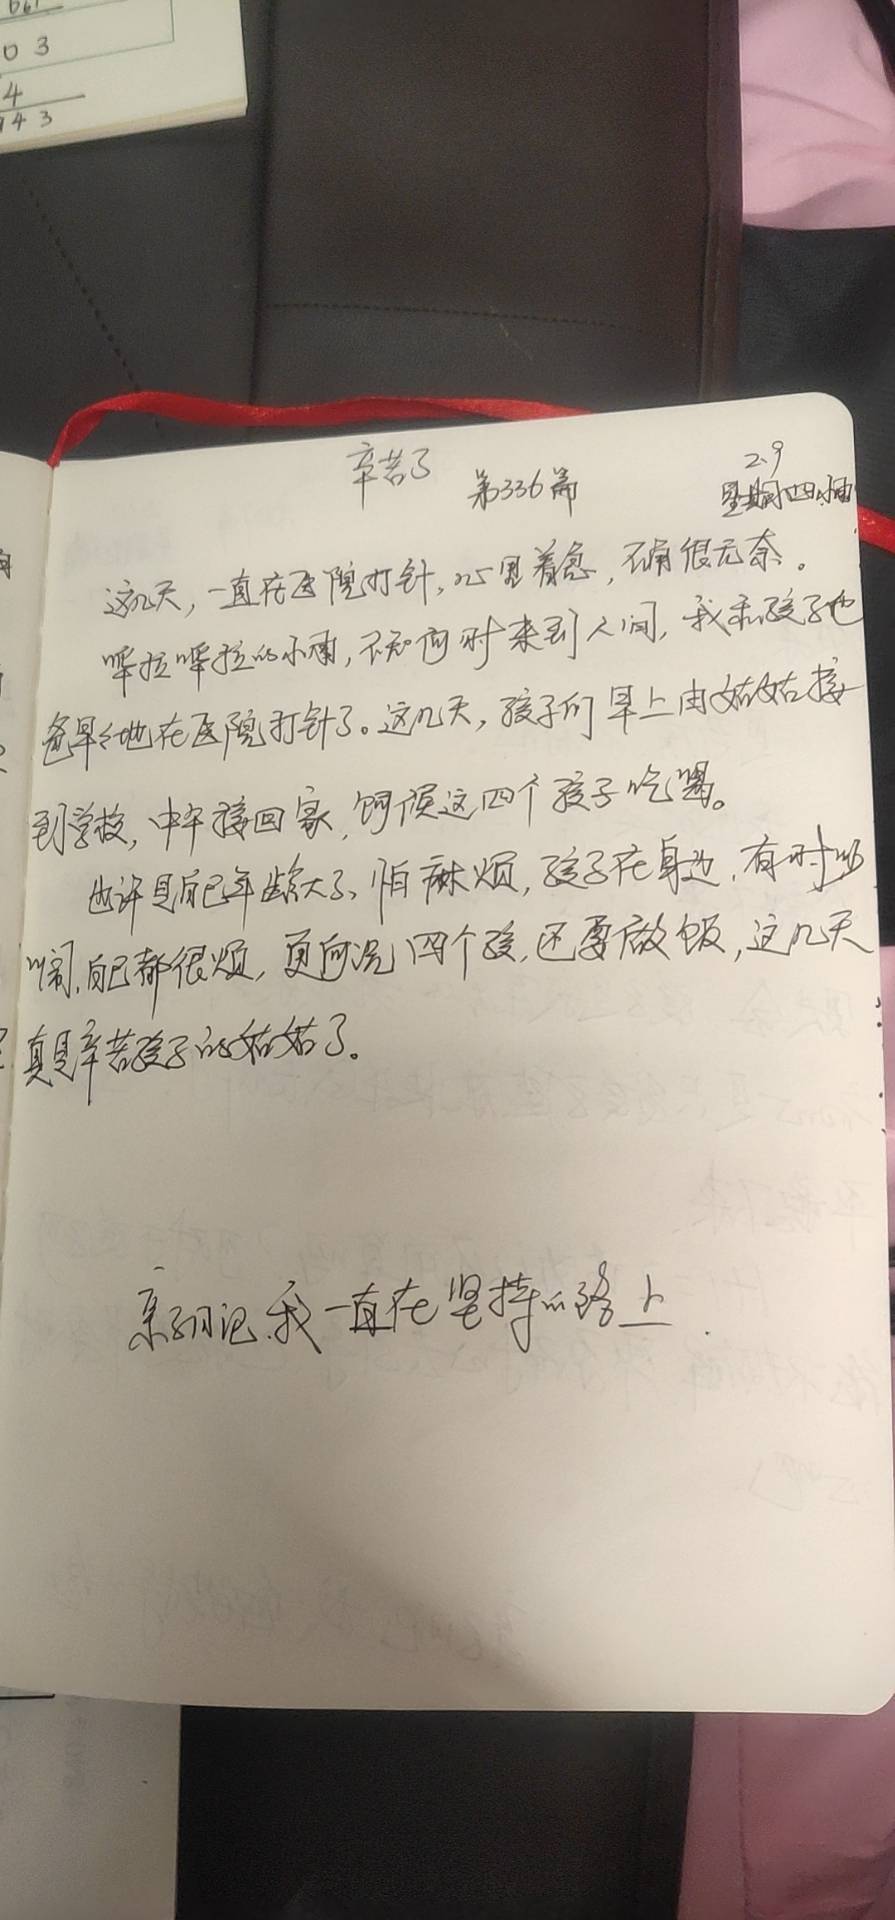 03
4
943
辛苦了
第336篇
2.9
星期四小雨
这几天，一直在医院打针，心里着急，不有很无奈。
哗拉哗拉的小雨，不知何时来到人间，我和孩子他
爸早早地在医院打针了。这几天，孩子们早上由姑姑接
到学校，中午接回家，伺候这四个孩子吃喝。
也许是自己年龄大了、怕麻烦，孩子在身边，有时吵
闹，自己都很烦，更何况四个孩，还要做饭，这几天
真是辛苦孩子的姑姑了。
亲子日记，我一直在坚持的路上.